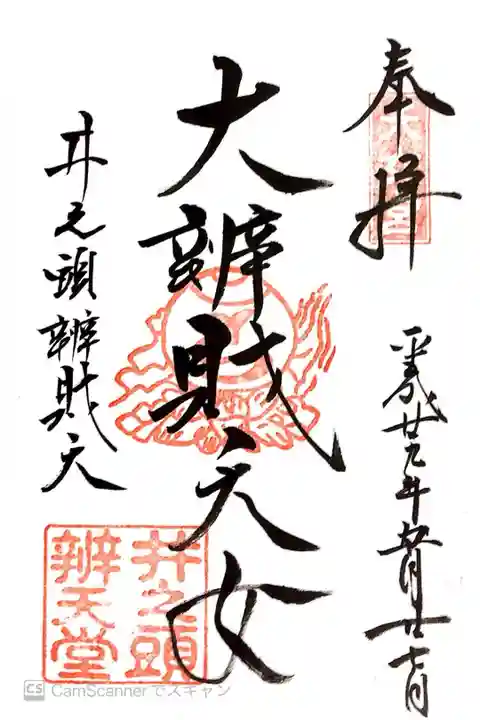 奉拝
大辨財天女
井之頭辨財天
平成廿九年
井之頭
辨天堂
CS CamScanner でスキャン